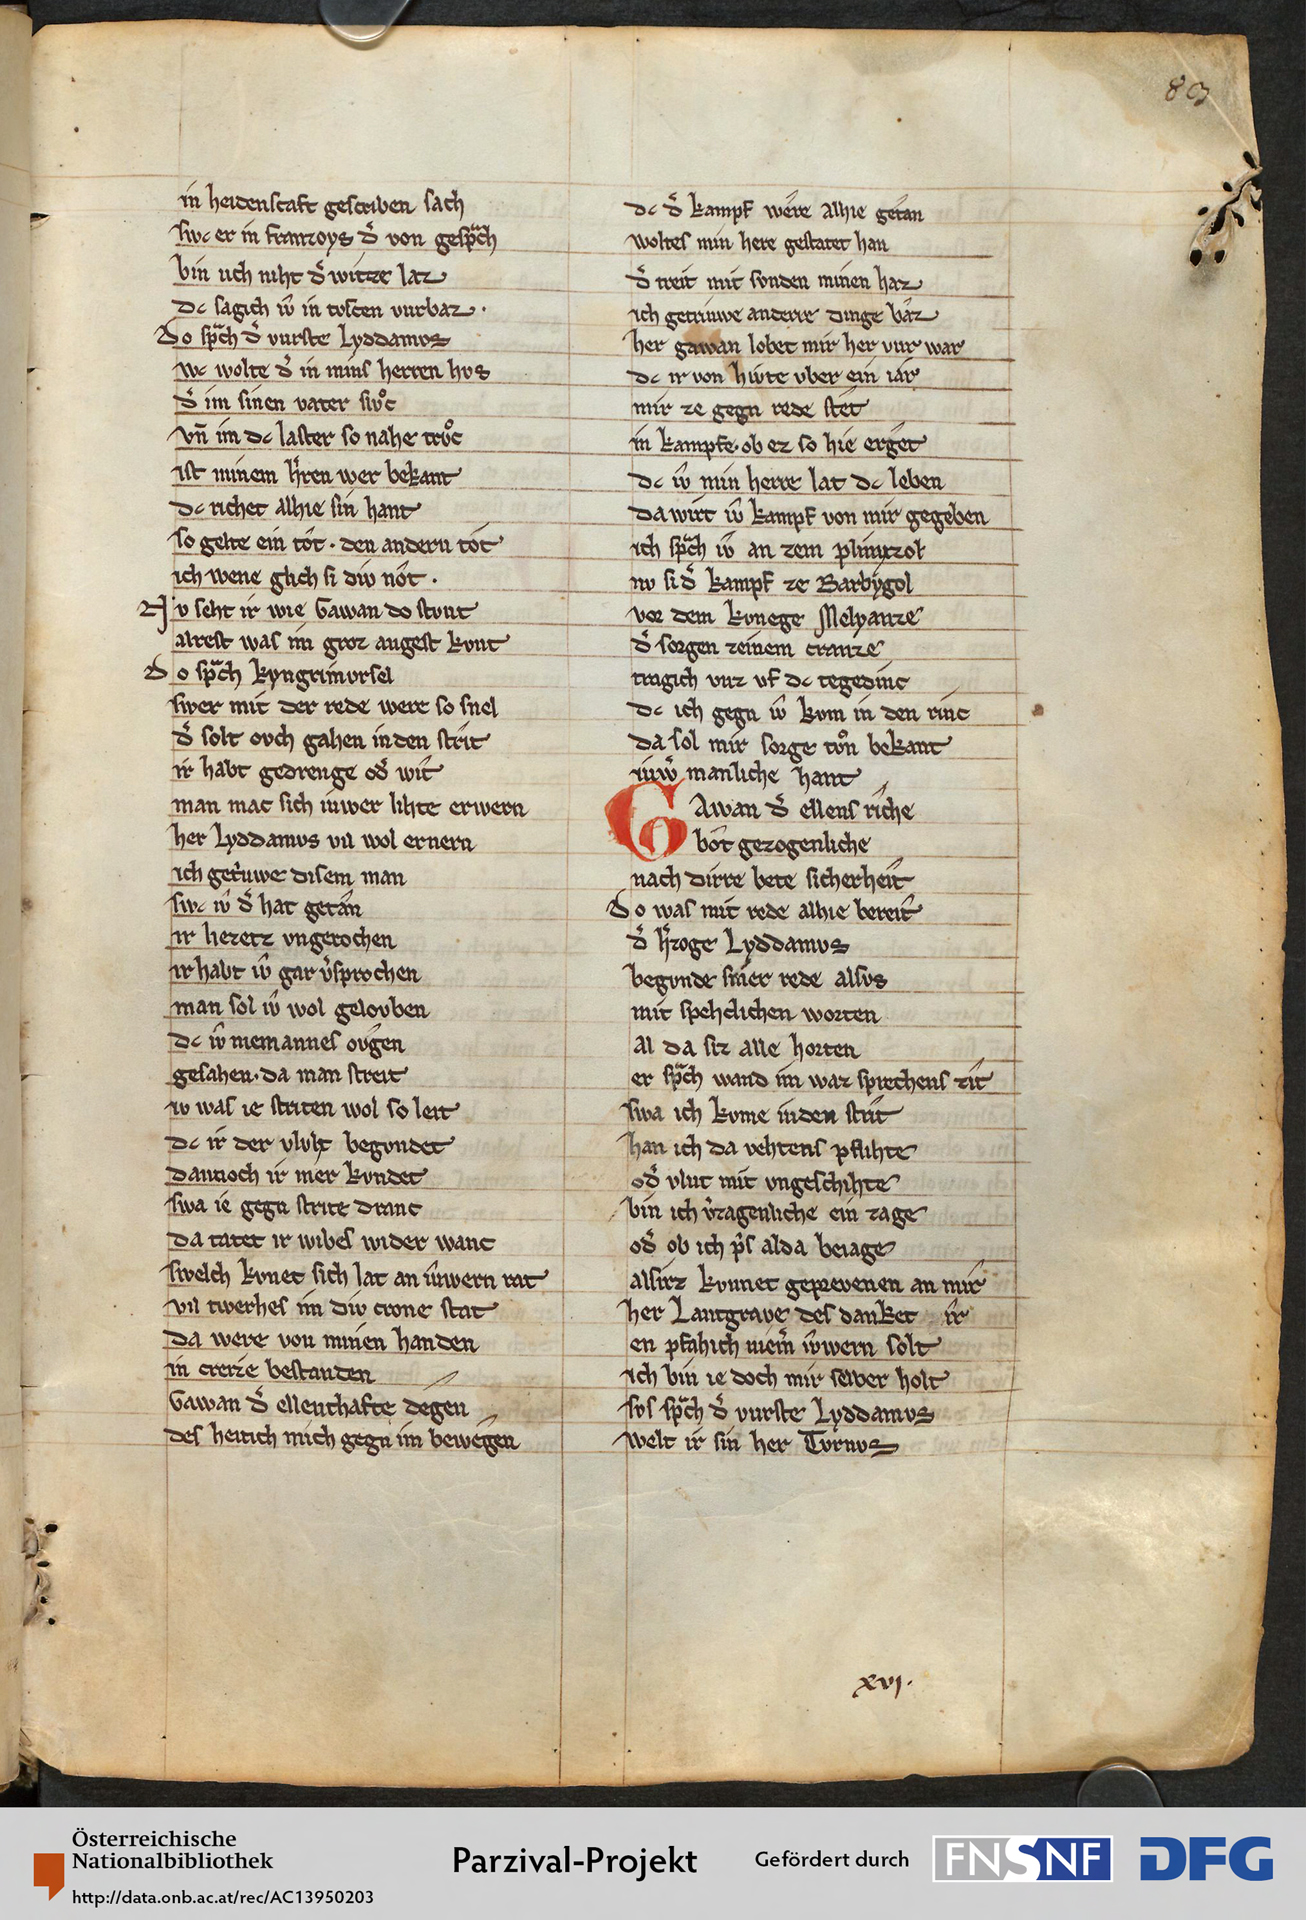 83
in heidenscaft gescriben sach
swc er in franzoys d̉ von gesp̃ch
bin uch niht d̉ witze laz
dc sagich iw̉ in tvscen vurbaz ·
Do sp̃ch d̉ vurste Lyddamvs
wc wolte d̉ in mins herren hvs
d̉ im sinen vater slvͦc
vn̄ im dc laster so nahe trvͦc
ist minem h̉ren wer bekant
dc richet alhie sin hant
so gelte ein tôt · den andern tôt
ich wene glich si div nôt ·
Nv seht ir wie Gawan do stvnt
alrest was im groz angest kvnt
Do sp̃ch kyngrimvrsel
swer mit der rede were so snel
d̉ solt ovch gahen in den strit
ir habt gedrenge od̉ wît
man mac sich iuwer lihte erwern
her Lyddamvs vil wol ernern
ich getr̉uwe disem man
swc iw̉ d̉ hat getân
ir liezetz vngerochen
ir habt iw̉ gar v̉sprochen
man sol iw̉ wol gelovben
dc iw̉ niemannes ovgen
gesahen · da man streit
iv was ie striten wol so leit
dc ir der vluht begvndet
dannoch ir mer kvndet
swa ie gegn strite dranc
da tatet ir wibes wider wanc
swelch kvnec sich lat an iuwern rat
vil twerhes im div crone stat
da were von minen handen
in creize bestanden
Gawan d̉ ellenthafte degen
des hetich mich gegn im bewegen
dc d̉ kampf wêre alhie getan
woltes min here gestatet han
d̉ treit mit svnden minen haz
ich getriuwe anderre dinge baz
her gawan lobet mir her vur war
dc ir von hivte vber ein iar
mir ze gegn rede stet
in kampfe · ob ez so hie erget
dc iw̉ min herre lat dc leben
da wirt iw̉ kampf von mir gegeben
ich sp̃ch iw̉ an zem plimizol
nv si d̉ kampf ze Barbygol
vor dem kvnege Melyanze
d̉ sorgen zeinem cranze
tragich vnz vf dc tegedinc
dc ich gegn iw̉ kvm in den rinc
da sol mir sorge tvͦn bekant
iuw̉ manliche hant
GAwan d̉ ellens riche
bôt gezogenliche
nach dirre bete sicherheit
Do was mit rede alhie bereit
d̉ h̉zoge Lyddamvs
begvnde siner rede alsvs
mit spehclichen worten
al da siz alle horten
er sp̃ch wand im waz sprechens zît
swa ich kvme in den strit
han ich da vehtens pflihte
od̉ vlut mit vngeschihte
bin ich v̉zagenliche ein zage
od̉ ob ich p̃s alda beiage
alsirz kvnnet geprevenen an mir
her Lantgrave des danket ir
en pfahich niem̉ iuwern solt
ich bin ie doch mir selber holt
svs sp̃ch d̉ vurste Lyddamvs
welt ir sin her Tvrnvs
xvj.
Österreichische
Nationalbibliothek
http://data.onb.ac.at/rec/AC13950203
Parzival-Projekt
Gefördert durch
FNSNF
DFG